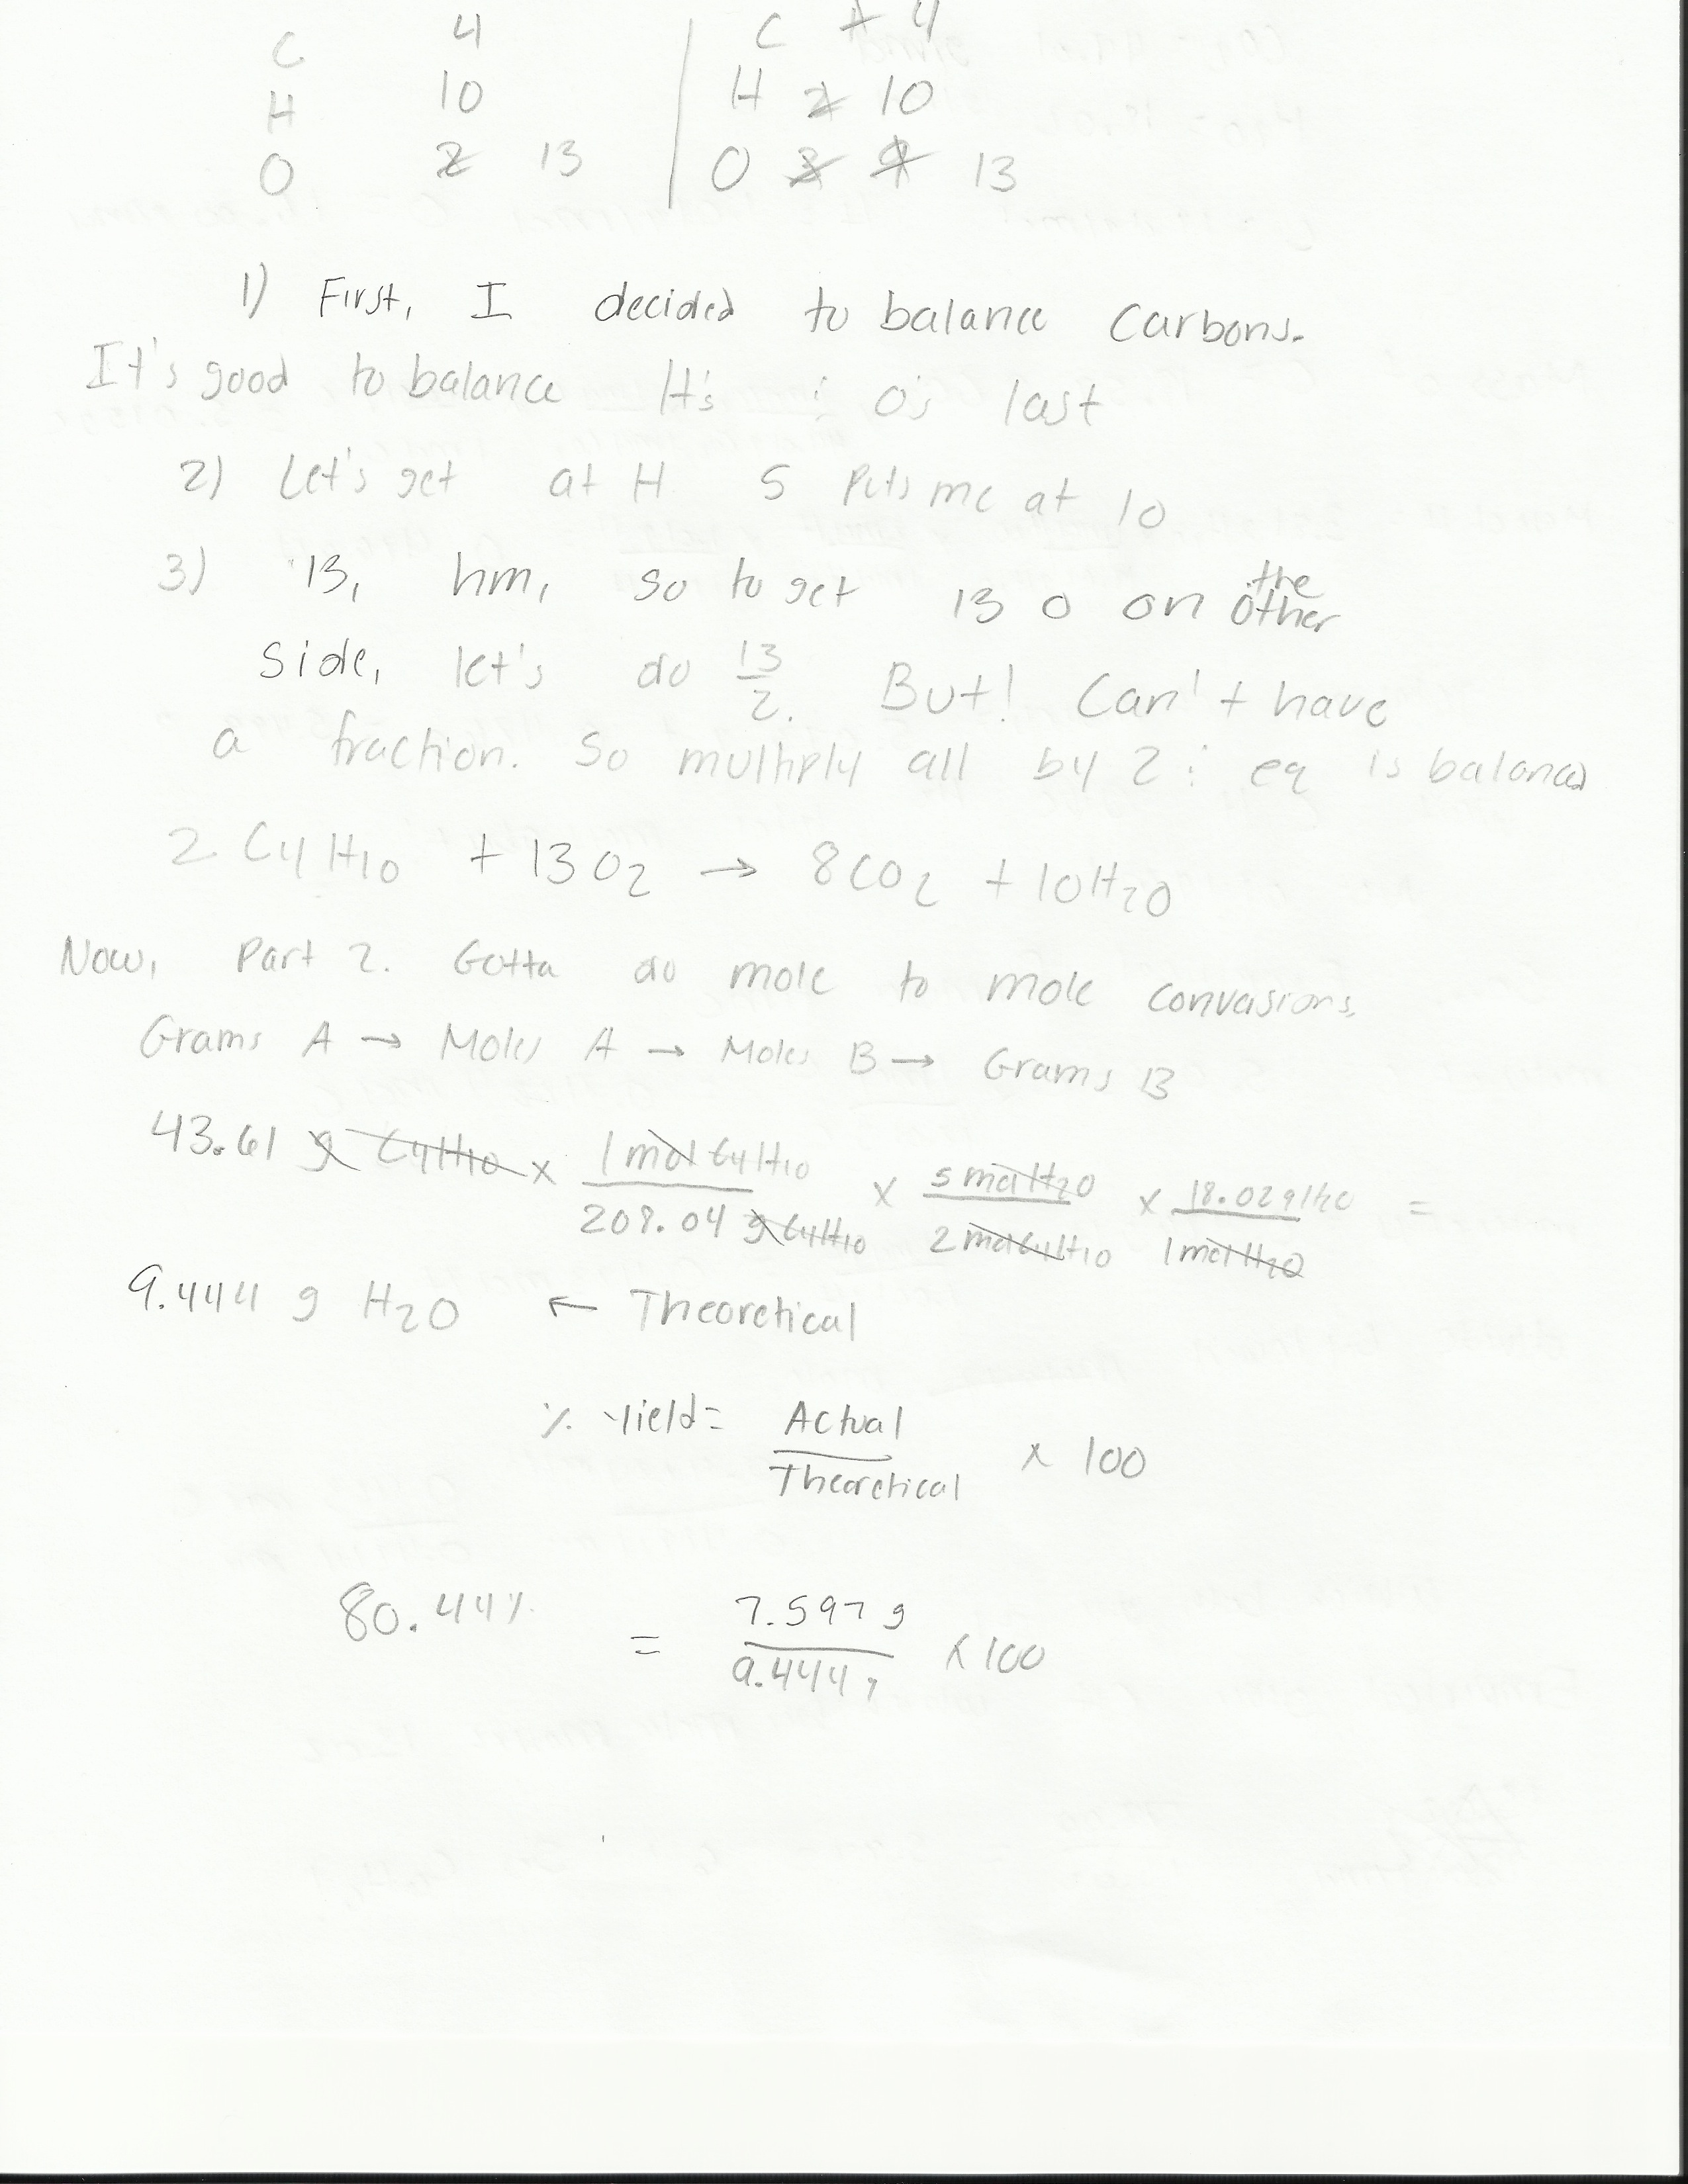 C 4 | C 1 4
H 10 | H 2 10
O 2 13 | O 3 9 13
1) First, I decided to balance Carbons.
It's good to balance H's & O's last
2) Let's get at H 5 Puts me at 10
3) 13, hm, so to get 13 O on the other
side, let's do 13/2. But! Can't have
a fraction. So multiply all by 2 & eq is balanced
2 C4H10 + 13O2 → 8CO2 + 10H2O
Now, Part 2. Gotta do mole to mole convasions.
Grams A → Moles A → Moles B → Grams B
43.61 g C4H10 x 1 mol C4H10 / 208.04 g C4H10 x 5 mol H2O / 2 mol C4H10 x 18.02 g H2O / 1 mol H2O =
9.444 g H2O ← Theoretical
% Yield = Actual / Theoretical x 100
80.44% = 7.597 g / 9.444 g x 100